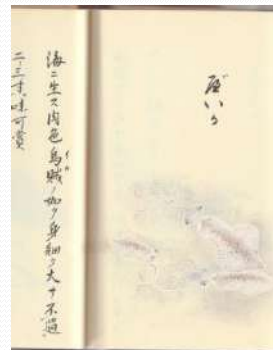 尾いか
海ニ生ス肉色烏賊ノ如ク身細ク大サ不過
いか
二三寸味可賞